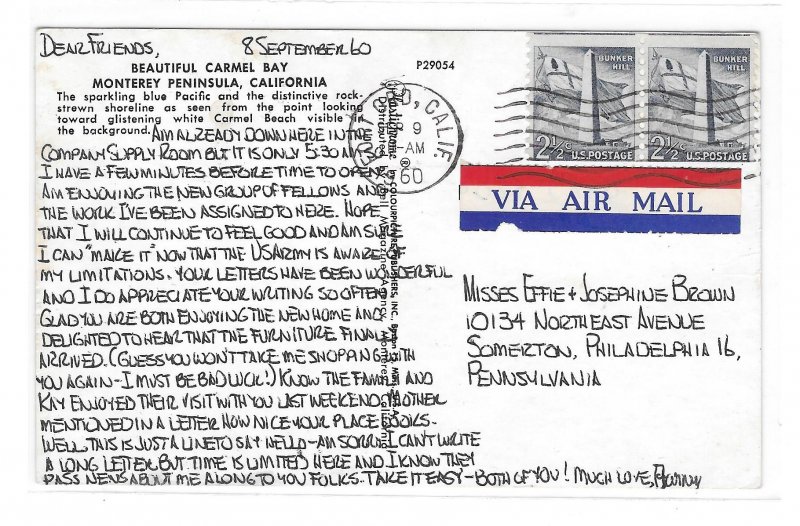 DEAR FRIENDS, 8 SEPTEMBER 60
BEAUTIFUL CARMEL BAY
MONTEREY PENINSULA, CALIFORNIA
The sparkling blue Pacific and the distinctive rock-
strewn shoreline as seen from the point looking
toward glistening white Carmel Beach visible in
the background.
P29054
AM ALREADY DOWN HERE IN THE
COMPANY SUPPLY ROOM BUT IT IS ONLY 5:30 AM SO
I HAVE A FEW MINUTES BEFORE TIME TO OPEN.
AM ENJOYING THE NEW GROUP OF FELLOWS AND
THE WORK I'VE BEEN ASSIGNED TO HERE. HOPE
THAT I WILL CONTINUE TO FEEL GOOD AND AM SURE
I CAN "MAKE IT" NOW THAT THE US ARMY IS AWARE OF
MY LIMITATIONS. YOUR LETTERS HAVE BEEN WONDERFUL
AND I DO APPRECIATE YOUR WRITING SO OFTEN.
GLAD YOU ARE BOTH ENJOYING THE NEW HOME AND
DELIGHTED TO HEAR THAT THE FURNITURE FINALLY
ARRIVED. (GUESS YOU WON'T TAKE ME SHOPPING WITH
YOU AGAIN - I MUST BE BAD LUCK!) KNOW THE FAMILY AND
KAY ENJOYED THEIR VISIT WITH YOU LAST WEEKEND. MOTHER
MENTIONED IN A LETTER HOW NICE YOUR PLACE LOOKS.
WELL, THIS IS JUST A LINE TO SAY HELLO - AM SORRY I CAN'T WRITE
A LONG LETTER BUT TIME IS LIMITED HERE AND I KNOW THEY
PASS NEWS ABOUT ME ALONG TO YOU FOLKS. TAKE IT EASY - BOTH OF YOU! MUCH LOVE,
FORT ORD, CALIF.
9
AM
60
BUNKER
HILL
2½c U.S. POSTAGE
BUNKER
HILL
2½c U.S. POSTAGE
VIA AIR MAIL
MISSES EFFIE + JOSEPHINE BROWN
10134 NORTHEAST AVENUE
SOMERTON, PHILADELPHIA 16,
PENNSYLVANIA